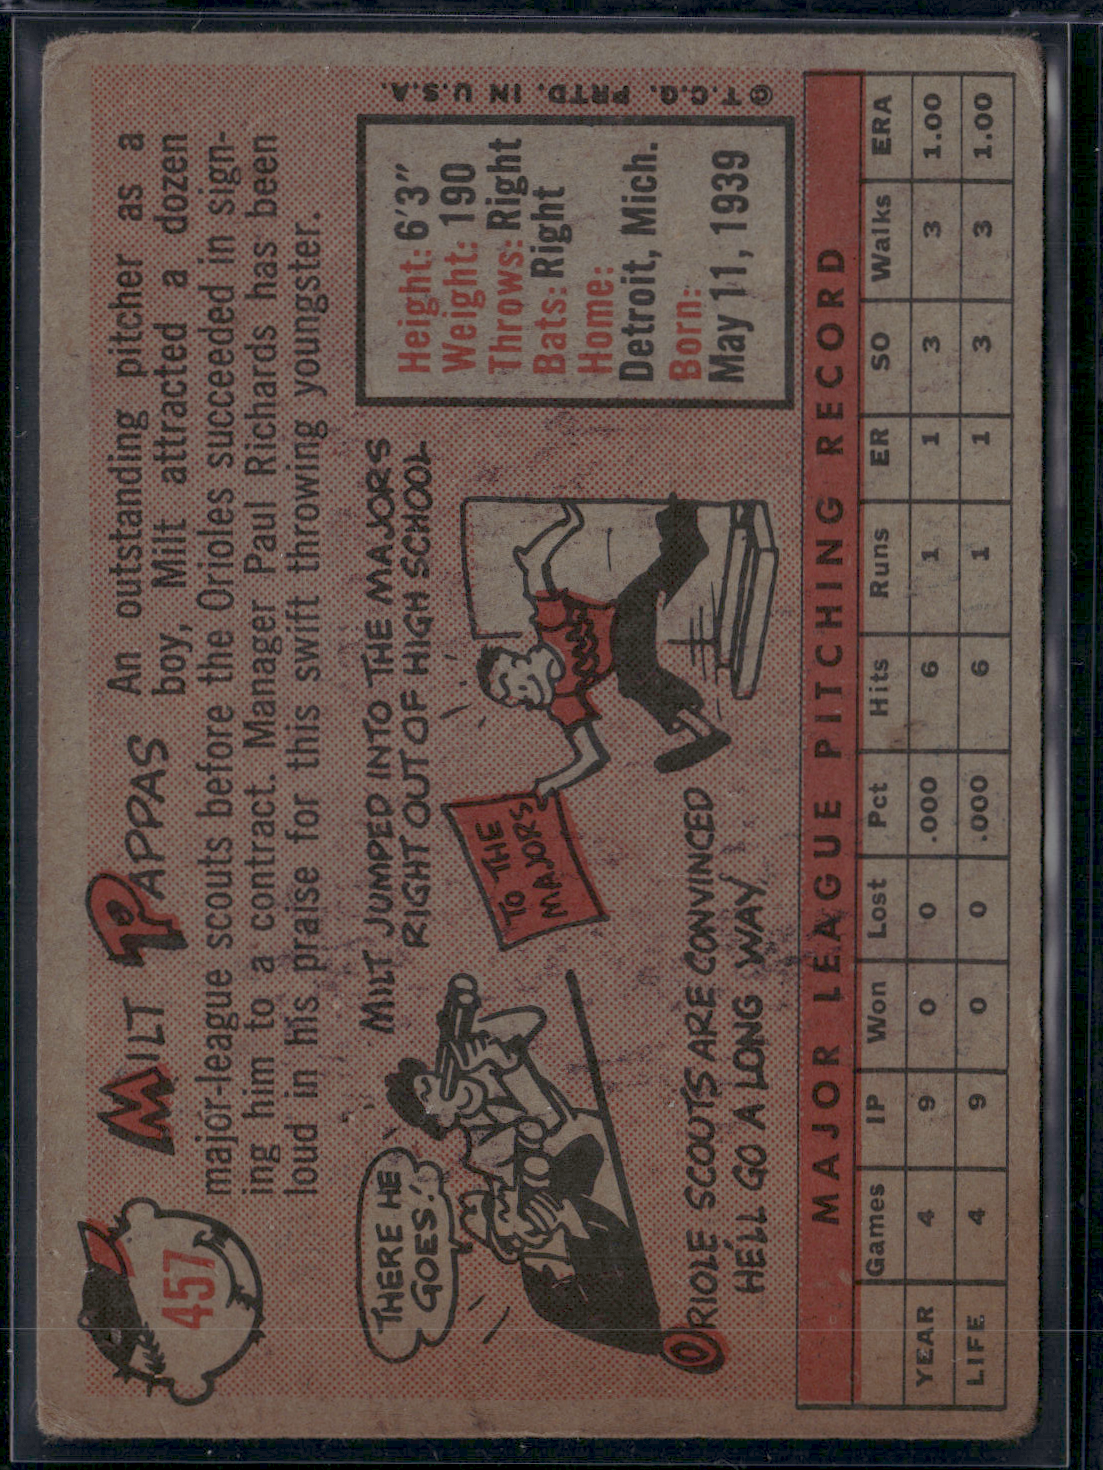 457
MILT PAPPAS
An outstanding pitcher as a
boy, Milt attracted a dozen
major-league scouts before the Orioles succeeded in sign-
ing him to a contract. Manager Paul Richards has been
loud in his praise for this swift throwing youngster.
MILT JUMPED INTO THE MAJORS
RIGHT OUT OF HIGH SCHOOL
THERE HE
GOES!
TO THE
MAJORS
ORIOLE SCOUTS ARE CONVINCED
HE'LL GO A LONG WAY
Height: 6'3"
Weight: 190
Throws: Right
Bats: Right
Home:
Detroit, Mich.
Born:
May 11, 1939
© T.C.G. PRTD. IN U.S.A.
MAJOR LEAGUE PITCHING RECORD
Games IP Won Lost Pct Hits Runs ER SO Walks ERA
YEAR 4 9 0 0 .000 6 1 1 3 3 1.00
LIFE 4 9 0 0 .000 6 1 1 3 3 1.00